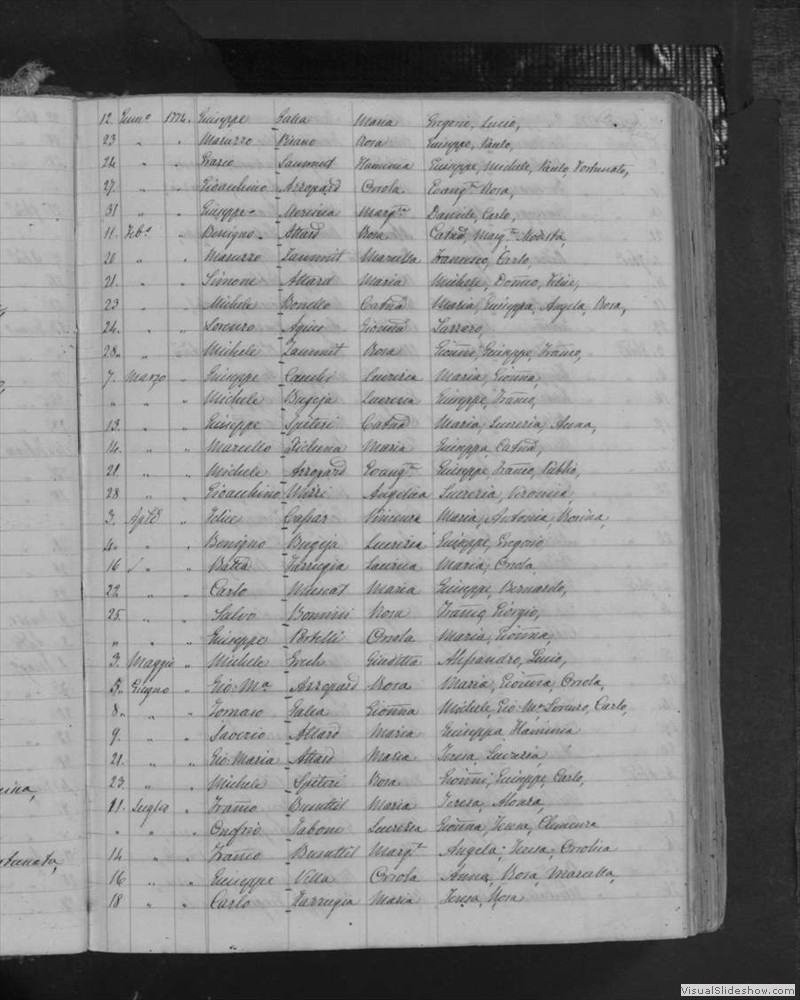 12. Genn.o 1774. Giuseppe Galea Maria Gregorio, Lucio,
23 " " Maruzzo Briano Rosa Giuseppe, Paolo,
24 " " Grazio Zammit Flaminia Giuseppe, Michele, Paolo, Fortunato,
27. " " Gioacchino Azzopard Orsola Evang.ta Rosa,
31 " " Giuseppe Marg.ta Daniele, Carlo,
11. Feb.o " Benigno Attard Rosa Catña, Marg.ta Modesta,
20 " " Maruzzo Zammit Marcella Francesco, Carlo
21. " " Simone Attard Maria Michele, Domco, Felice,
23 " " Michele Bonello Catña Maria, Giuseppa, Angela, Rosa,
24. " " Lorenzo Agius Gionña
28. " " Michele Zammit Rosa Gionñi, Giuseppe, Franco,
7. Marzo " Giuseppe Caruh Lucrezia Maria, Gionña,
" " " Michele Bugeja Lucrezia Giuseppe, Franco,
13. " " Giuseppe Spiteri Catña Maria, Lucrezia, Anna,
14. " " Marcello Maria Giuseppa, Catña,
21. " " Michele Azzopard Evang.ta Giuseppe, Franco, Publio,
28 " " Gioacchino Mizzi Angelica Lucrezia, Veronica,
3. Aple " Felice Caspar Vincenza Maria, Antonia, Rosina,
4. " " Benigno Bugeja Lucrezia Giuseppe, Gregorio
16 " " Batta Farrugia Laurica Maria, Orsola,
22. " " Carlo Muscat Maria Giuseppe, Bernardo,
25. " " Salvo Bonnici Rosa Franco, Giorgio,
" " " Giuseppe Portelli Orsola Maria, Gionña,
3. Maggio " Michele Grech Giuditta Alessandro, Lucio,
5. Giugno " Gio: Ma Azzopard Rosa Maria, Gionña, Orsola,
8. " " Tomaso Galea Gionña Michele, Gio: Ma Lorenzo, Carlo,
9. " " Saverio Attard Maria Giuseppa, Flaminia
21. " " Gio: Maria Attard Maria Teresa, Lucrezia,
23. " " Michele Spiteri Rosa Gionñi, Giuseppe, Carlo,
11. Luglio " Franco Busuttil Maria Teresa, Aloisa,
" " " Onofrio Tabone Lucrezia Gionña, Teresa, Clemenza
14 " " Franco Busuttil Marg.ta Angela, Teresa, Orsolica
16 " " Giuseppe Vella Orsola Anna, Rosa, Marcella,
18 " " Carlo Farrugia Maria Teresa, Rosa
VisualSlideshow.com